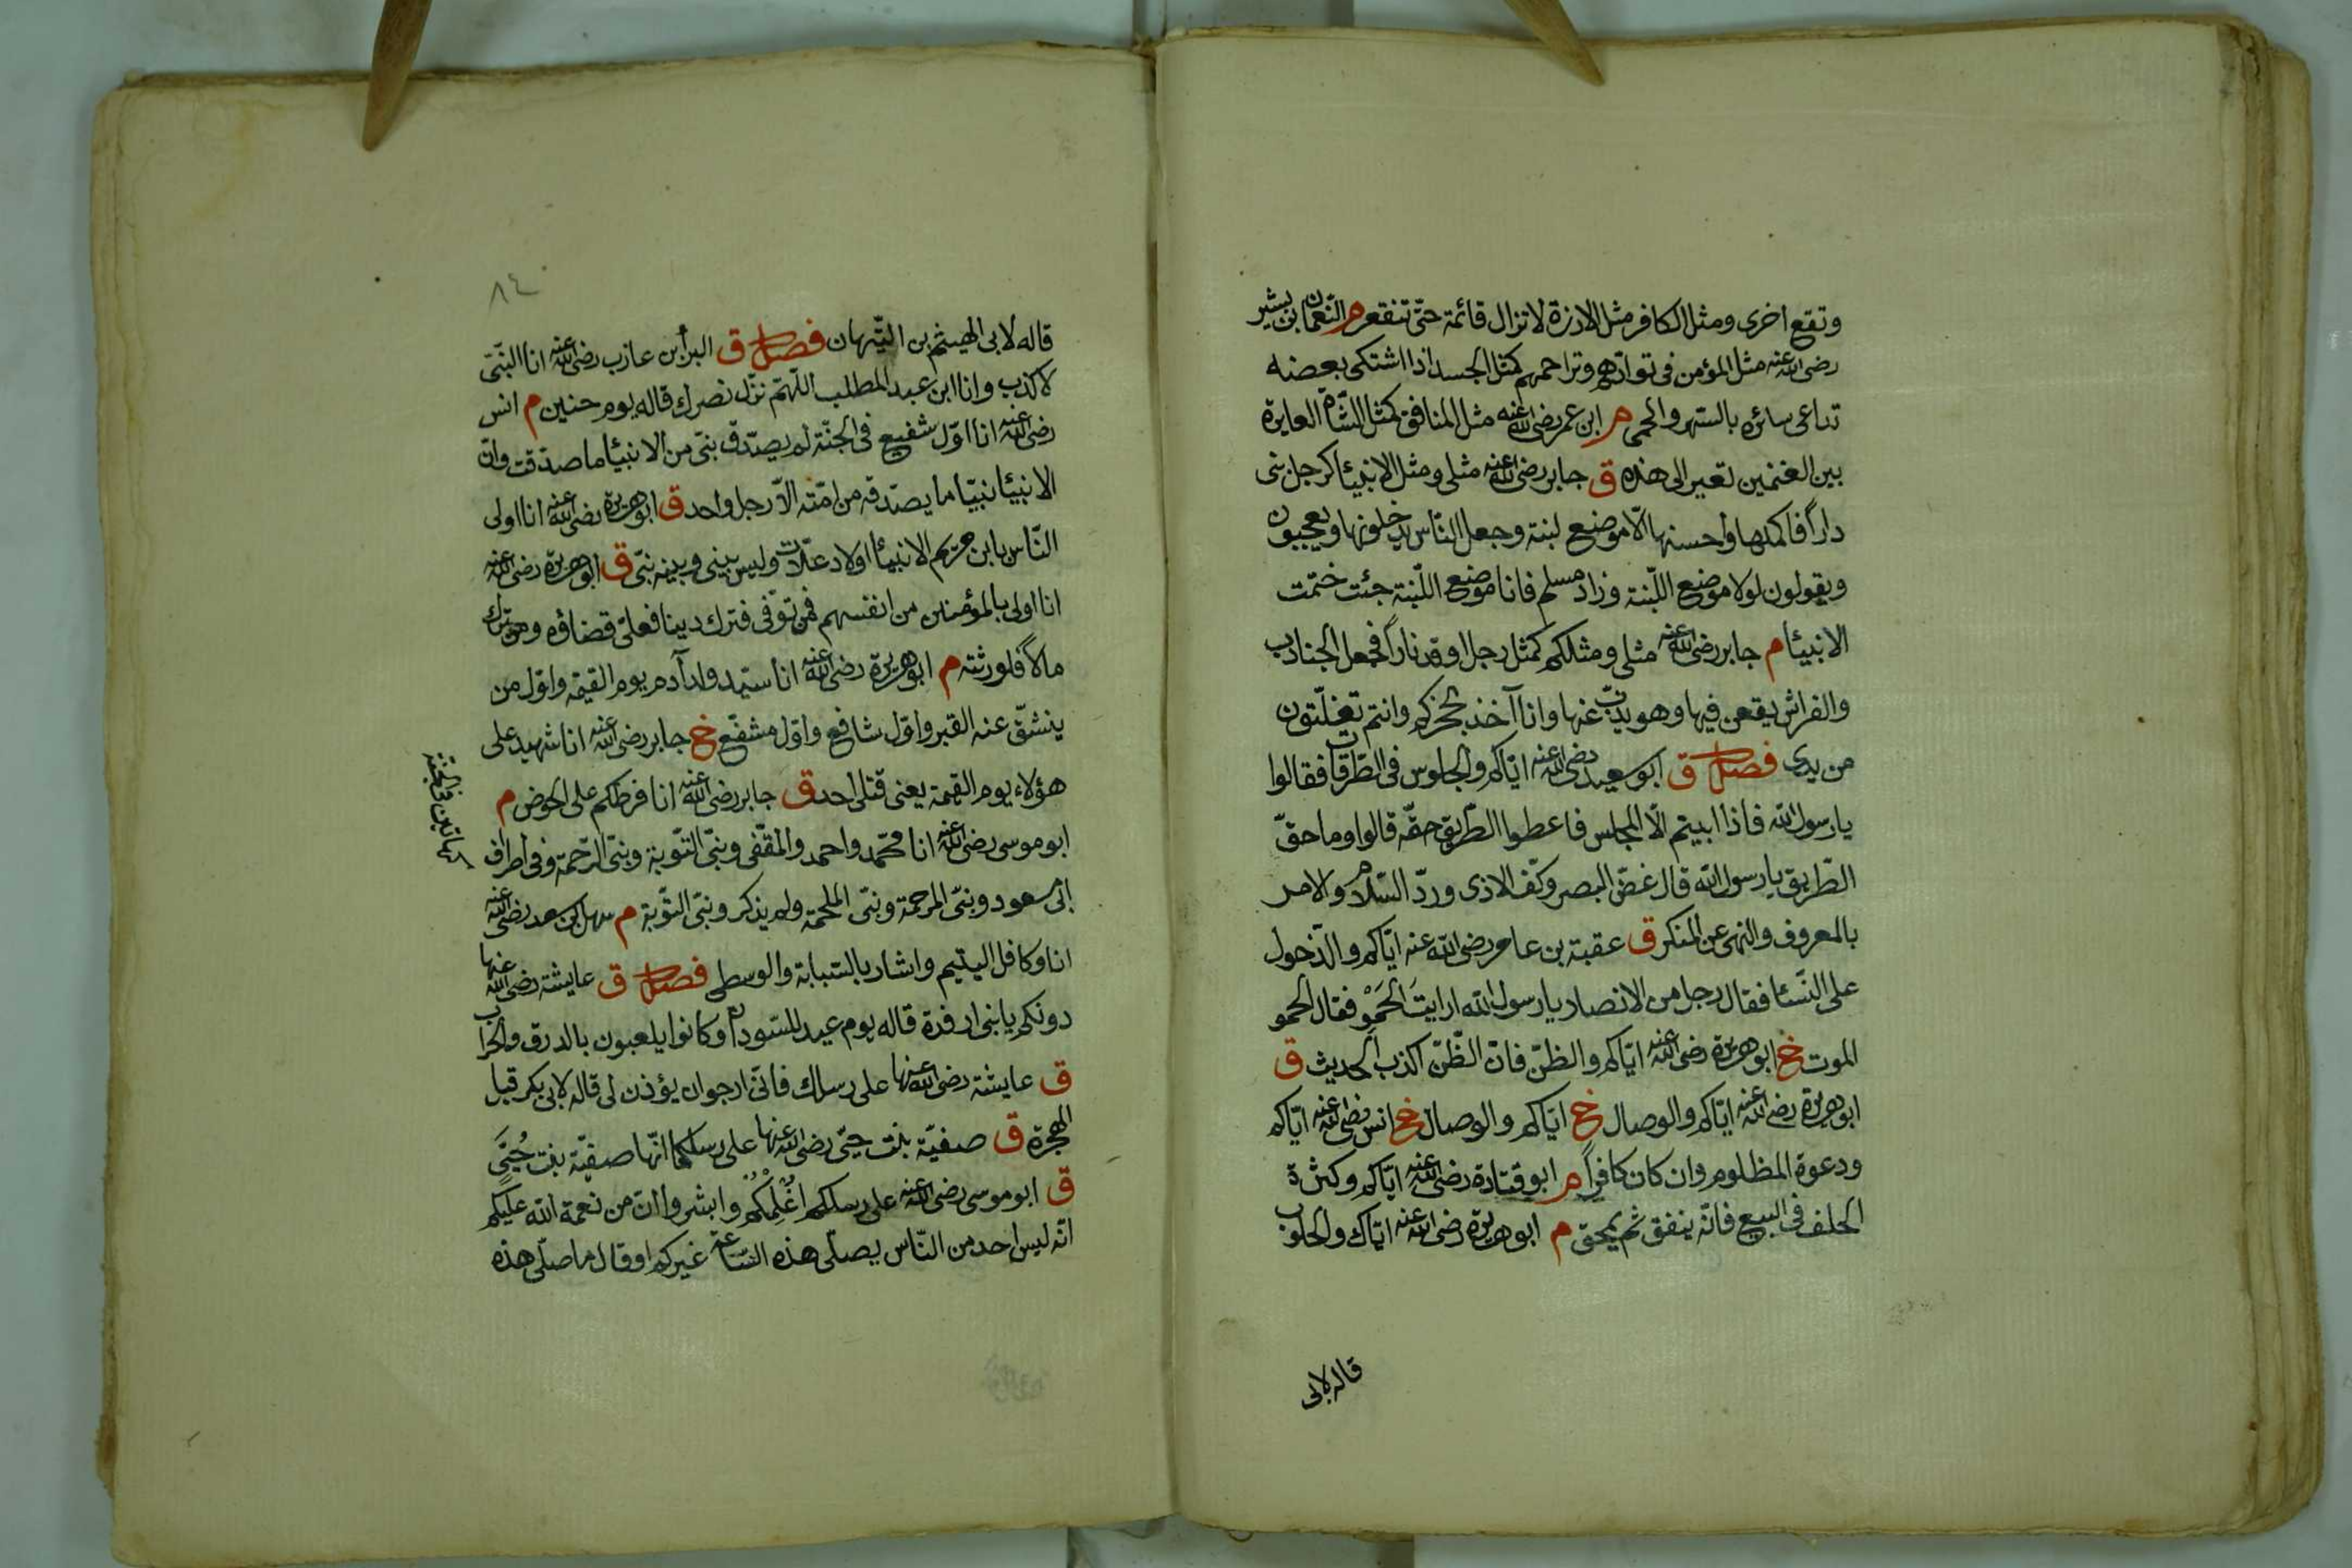 وتقع اخرى ومثل الكافر مثل الارزة لا تزال قائمة حتّى تنقعر م النّعمان بن بشير
رضى الله عنه مثل المؤمن فى توادّهم وتراحمهم كمثل الجسد اذا اشتكى بعضه
تداعى سائره بالسّهر والحمى م ابن عمر رضى الله عنه مثل المنافق كمثل الشّاة العايرة
بين الغنمين تعير الى هذه ق جابر رضى الله عنه مثلى ومثل الانبيٓا كرجل بنى
داراً فاكملها واحسنها الّا موضع لبنة وجعل النّاس يدخلونها ويعجبون
ويقولون لولا موضع اللّبنة وزاد مسلم فانا موضع اللّبنة جئت ختمت
الانبيٓا م جابر رضى الله عنه مثلى ومثلكم كمثل رجل اوقد ناراً فجعل الجنادب
والفراش يقعن فيها وهو يذبّ عنها وانا آخذ بحجزكم وانتم تفلّتون
من يدى فصل ق ابو سعيد رضى الله عنه ايّاكم والجلوس فى الطّرقات فقالوا
يا رسول الله فاذا ابيتم الّا المجلس فاعطوا الطّريق حقّه قالوا وما حقّ
الطّريق يا رسول الله قال غضّ البصر وكفّ الاذى وردّ السّلام والامر
بالمعروف والنهى عن المنكر ق عقبة بن عامر رضى الله عنه ايّاكم والدّخول
على النّسٓا فقال رجل من الانصار يا رسول الله ارايتَ الحَمْوَ فقال الحمو
الموت خ ابو هريرة رضى الله عنه ايّاكم والظنّ فانّ الظّنّ اكذب الحديث ق
ابو هريرة رضى الله عنه ايّاكم والوصال خ ايّاكم والوصال خ انس رضى الله عنه ايّاكم
ودعوة المظلوم وان كان كافراً م ابو قتادة رضى الله عنه ايّاكم وكثرة
الحلف فى البيع فانّه ينفق ثم يمحق م ابو هريرة رضى الله عنه ايّاك والحلوب
قاله لابى
٨٤
قاله لابى الهيثم بن التّيهان فصل ق البرأ بن عازب رضى الله عنه انا النّبىّ
لا كذب وانا ابن عبد المطلب اللّهمّ نزّل نصرك قاله يوم حنين م انس
رضى الله عنه انا اوّل شفيع فى الجنّة لم يصدّق نبىّ من الانبيٓا ما صدّقت وانّ
الانبيٓا نبيّا ما يصدّقه من امّته الاّ رجل واحد ق ابو هريرة رضى الله عنه انا اولى
النّاس بابن مريم الانبيٓا اولاد علّات وليس بينى وبينه نبىّ ق ابو هريرة رضى الله عنه
انا اولى بالمؤمنين من انفسهم فمن توفّى فترك دينا فعلىّ قضاؤه ومن ترك
مالاً فلورثته م ابو هريرة رضى الله عنه انا سيّد ولد آدم يوم القيمة واوّل من
ينشقّ عنه القبر واوّل شافع واوّل مشفّع خ جابر رضى الله عنه انا شهيد على
هؤلاء يوم القيمة يعنى قتلى احد ق جابر رضى الله عنه انا فرطكم على الحوض م
ابو موسى رضى الله عنه انا محمّد واحمد والمقفّى ونبىّ التّوبة ونبىّ الرّحمة وفى اطراف
ابى مسعود ونبىّ المرحمة ونبىّ الملحمة ولم يذكر ونبىّ التّوبة م سهل بن سعد رضى الله عنه
انا وكافل اليتيم واشار بالسّبابة والوسطى فصل ق عايشة رضى الله عنها
كهاتين فى الجنّة
دونكم يا بنى ارفدة قاله يوم عيد للسّودان وكانوا يلعبون بالدرق والحراب
ق عايشة رضى الله عنها على رسلك فانّى ارجو ان يؤذن لى قاله لابى بكر قبل
الهجرة ق صفيّة بنت حيىّ رضى الله عنها على رسلكما انّها صفيّة بنت حُيَىّ
ق ابو موسى رضى الله عنه على رسلكم اعْلِمُكم وابشروا انّ من نعمة الله عليكم
انّه ليس احد من النّاس يصلّى هذه السّاعة غيركم او قال ما صلّى هذه